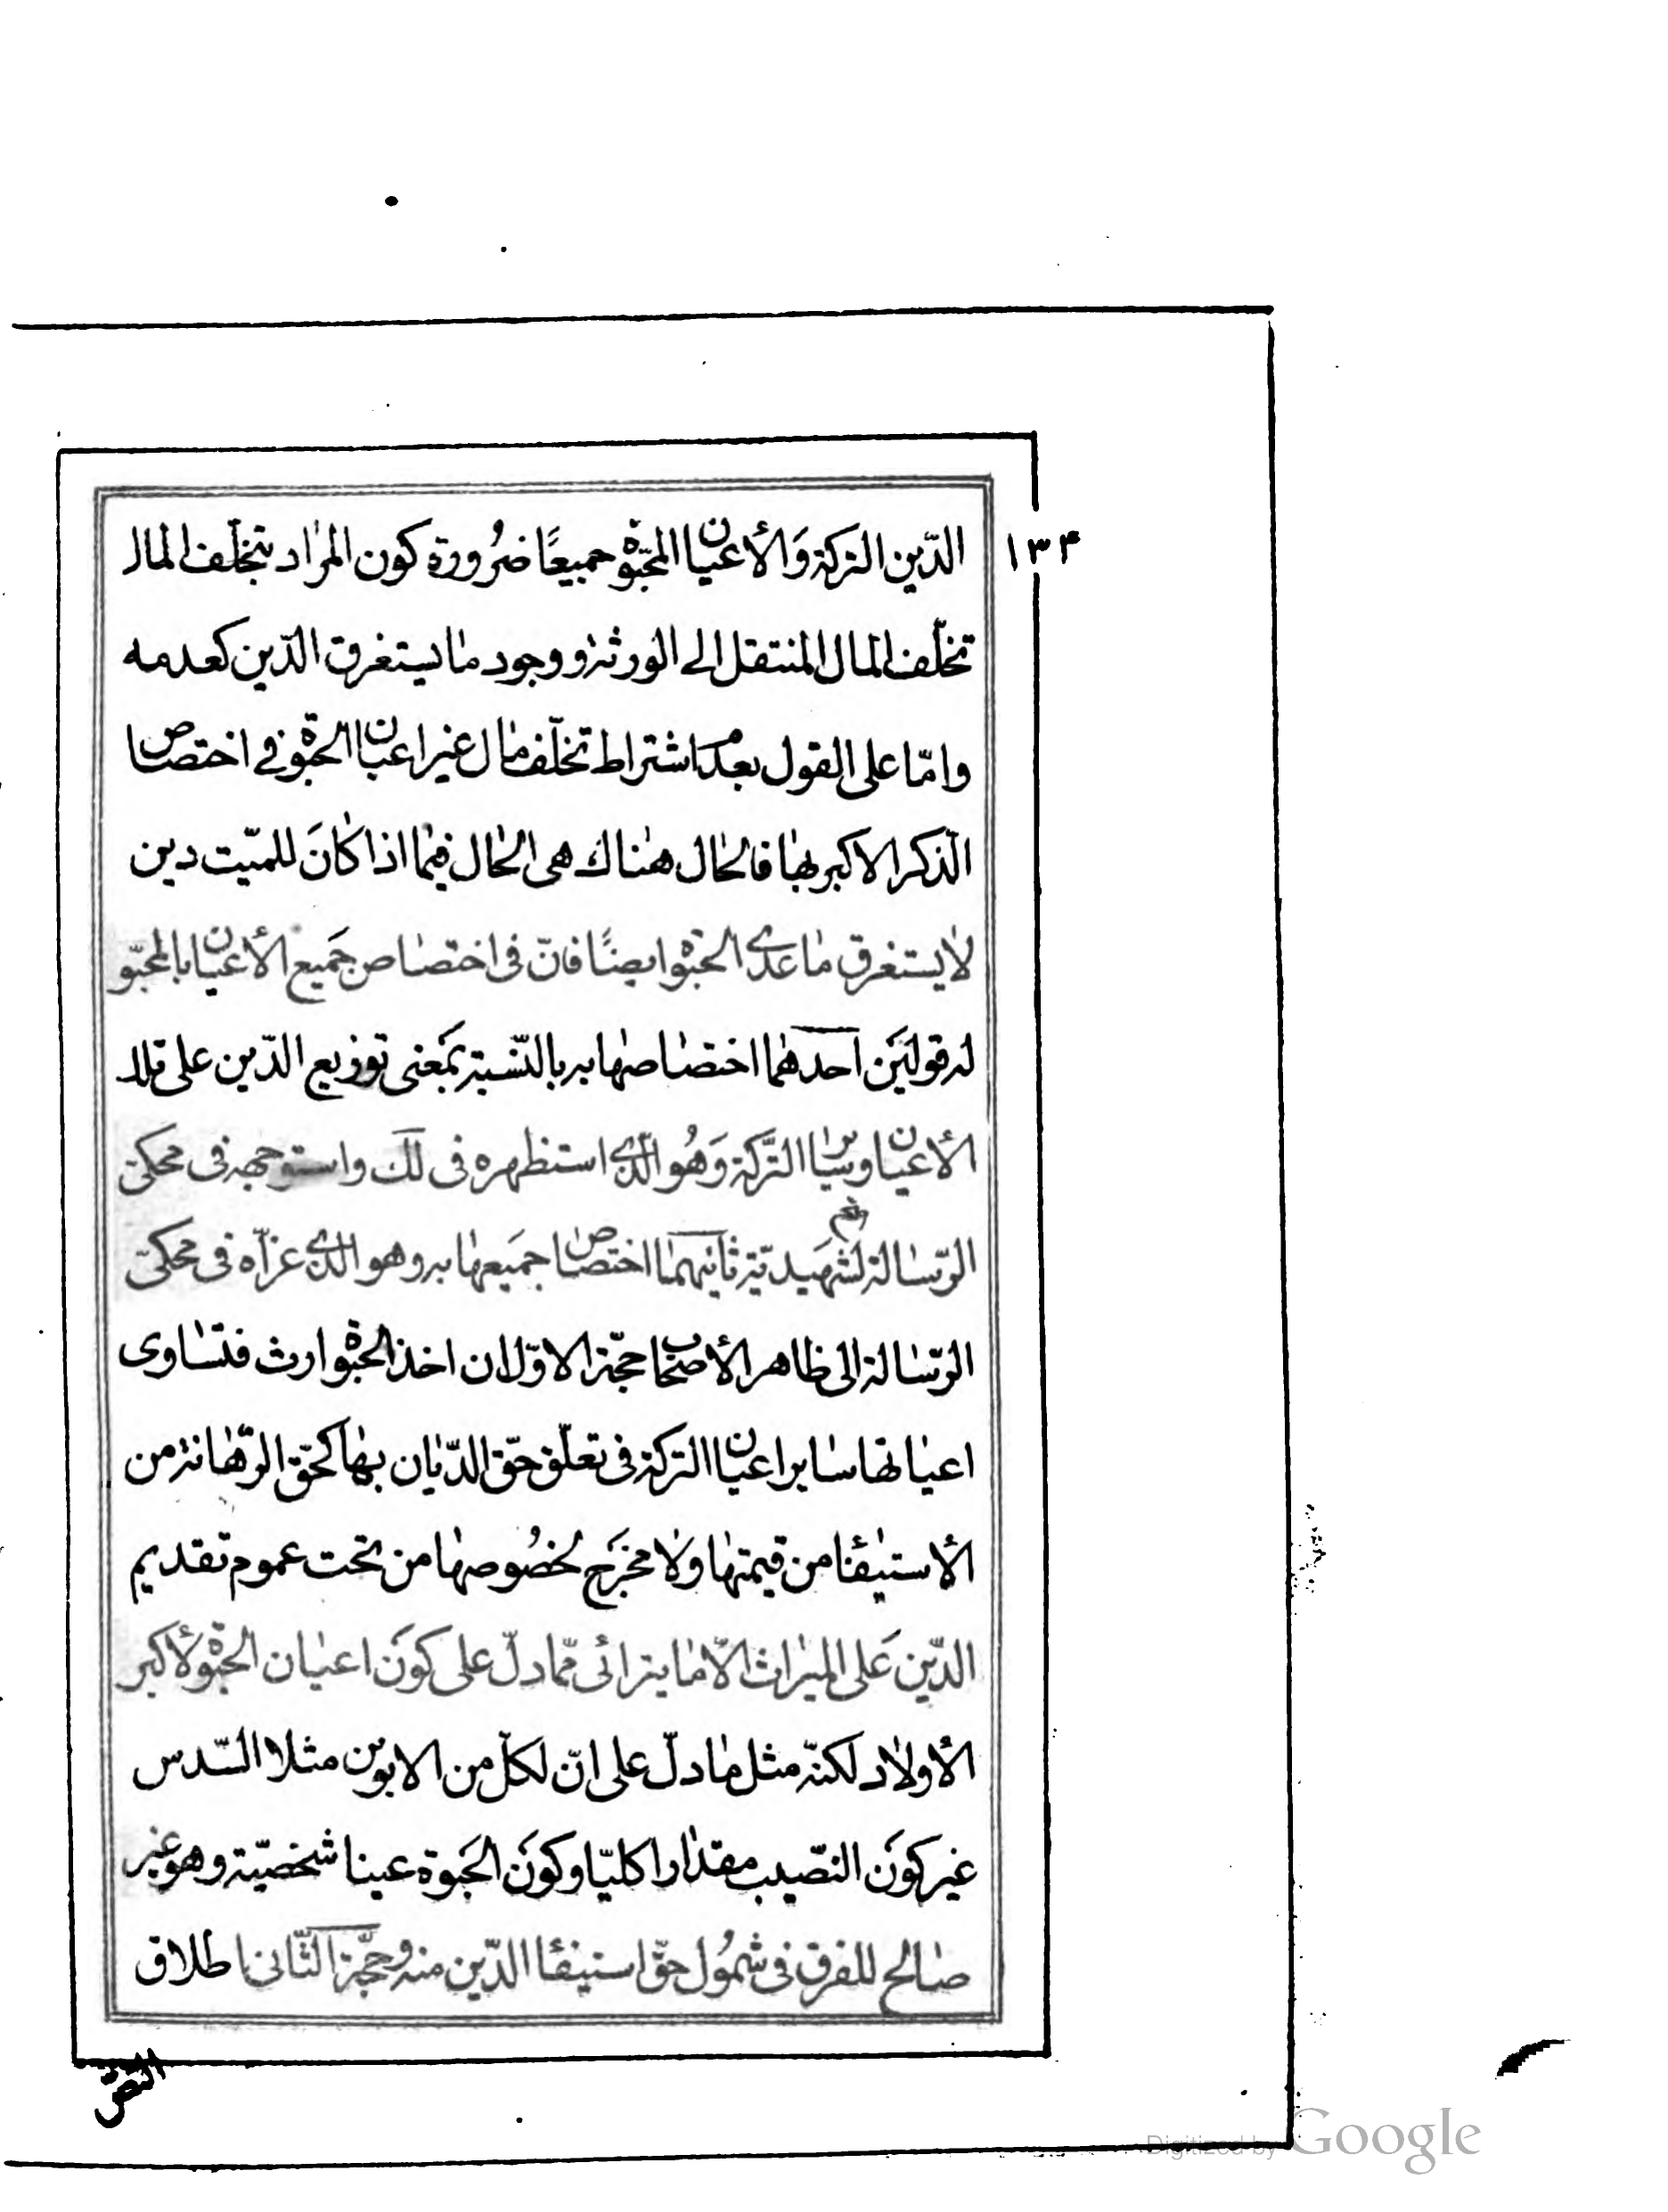 ١٣۴
الدّين التركة وَالأعيان المحبّوة جميعًا ضرُورة كون المراد بتخلّف المال
تخلّف المال المنتقل الى الورثة ووجود ما يستغرق الدّين كعدمه
وامّا على القول بعدم اشتراط تخلّف مال غير اعيان الحبوة في اختصاص
الذكر الاكبر بها فالحال هناك هى الحال فيما اذا كانَ للميّت دين
لا يستغرق ما عدى الحبوة ايضًا فانّ فى اختصاص جَميع الأعيان بالمحبّو
له قولَين آحدهما اختصاصها به بالنّسبة بمَعنى توزيع الدّين على تلك
الأعيان وساير التَّركة وَهُو الّذى استظهره فى لك واستوجهه فى محكى
الرّسالة لشهَيديّة ثانيهما اختصاص جميَعها به وهو الذى عزاه فى محكى
الرّسالة الى ظاهر الأصحاب حجّة الاوّل ان اخذ الحبوة ارث فتساوى
اعيانها ساير اعيان التركة فى تعلّق حَقّ الدّيان بها كحَقّ الرّهانة من
الأستيفاء من قيمتها ولا مخرَج لخصُوصها من تحت عموم تقديم
الدّين عَلى الميراث الّا ما يترائى ممّا دلّ على كونَ اعيان الحبوة لأكبر
الأولاد لكنّه مثل ما دلّ على انّ لكلّ من الابوين مثلا السّدس
غير كونَ النصّيب مقدارا كليّا وكونَ الحَبوة عينا شخصّية وهو غير
صالح للفرق فى شمُول حقّ استيفاء الدّين منه وحجّة الثّانى اطلاق
النصّ
Digitized by Google